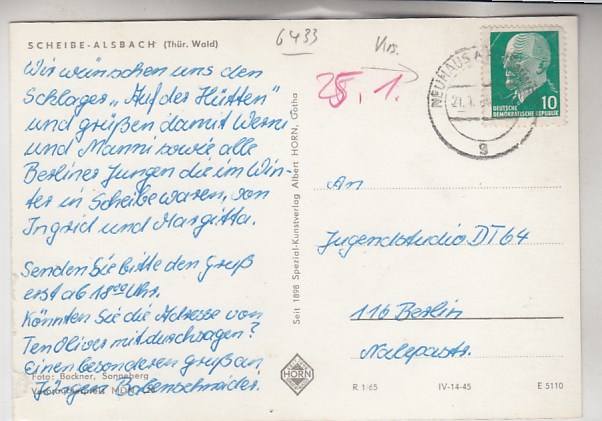 SCHEIBE-ALSBACH (Thür. Wald)
6433
Wir wünschen uns den
Schlager „Auf der Hütten"
und grüßen damit Werni
und Manni sowie alle
Berliner Jungen die im Win-
ter in Scheibe waren, von
Ingrid und Margitta.
Senden Sie bitte den Gruß
erst ab 18⁰⁰ Uhr.
Könnten Sie die Adresse von
Ten Olivers mit durchsagen?
Einen besonderen Gruß an
Jürgen
Foto: Bockner, Sonneberg
Seit 1898 Spezial-Kunstverlag Albert HORN, Gotha
25. 1.
NEUHAUS A
21.1.
g
DEUTSCHE
DEMOKRATISCHE REPUBLIK
10
An
Jugendstudio DT 64
116 Berlin
Nalepastr.
HORN
R 1/65 IV-14-45 E 5110